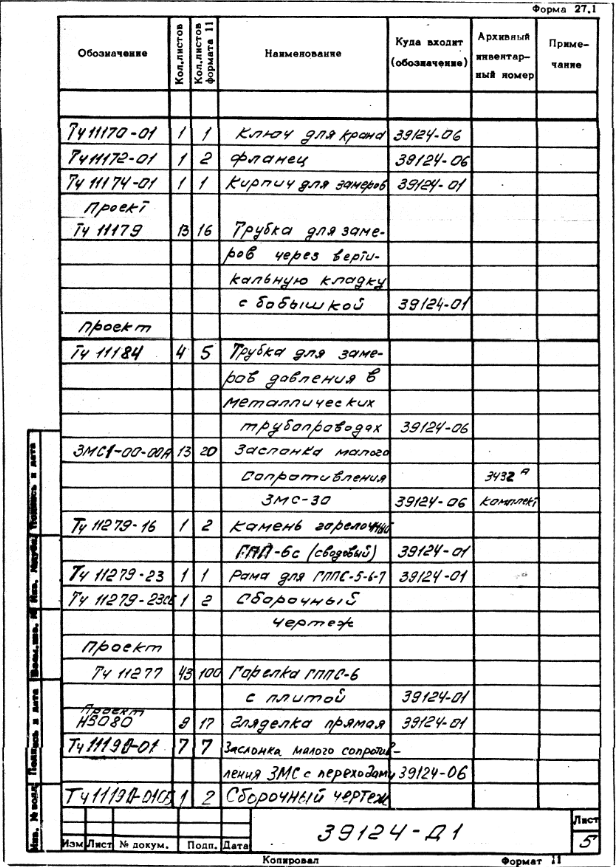 Форма 27.1
Обозначение Кол.листов Кол.листов формата 11 Наименование Куда входит (обозначение) Архивный инвентарный номер Примечание
ТЧ 11170-01 1 1 Ключ для крана 39124-06
ТЧ 11172-01 1 2 Фланец 39124-06
ТЧ 11174-01 1 1 Кирпич для замеров 39124-01
Проект
ТЧ 11179 13 16 Трубка для заме-
ров через верти-
кальную кладку
с бобышкой 39124-01
Проект
ТЧ 11184 4 5 Трубка для заме-
ров давления в
металлических
трубопроводах 39124-06
ЗМС1-00-00А 13 20 Заслонка малого
Сопротивления 3432 А
ЗМС-30 39124-06 комплект
ТЧ 11279-16 1 2 Камень горелочный
ГПП-6с (сводовый) 39124-01
ТЧ 11279-23 1 1 Рама для ГППС-5-6-7 39124-01
ТЧ 11279-23СБ 1 2 Сборочный
чертеж
Проект
ТЧ 11277 43 100 Горелка ГППС-6
с плитой 39124-01
Проект
НЗ080 9 17 Гляделка прямая 39124-01
ТЧ 11190-01 7 7 Заслонка малого сопротив-
ления ЗМС с переходами 39124-06
ТЧ 11190-01СБ 1 2 Сборочный чертеж
39124-Д1
Лист
5
Изм Лист № докум. Подп. Дата
Копировал Формат 11
Инв. № подл. Подпись и дата Взам. инв. № Инв. № дубл. Подпись и дата